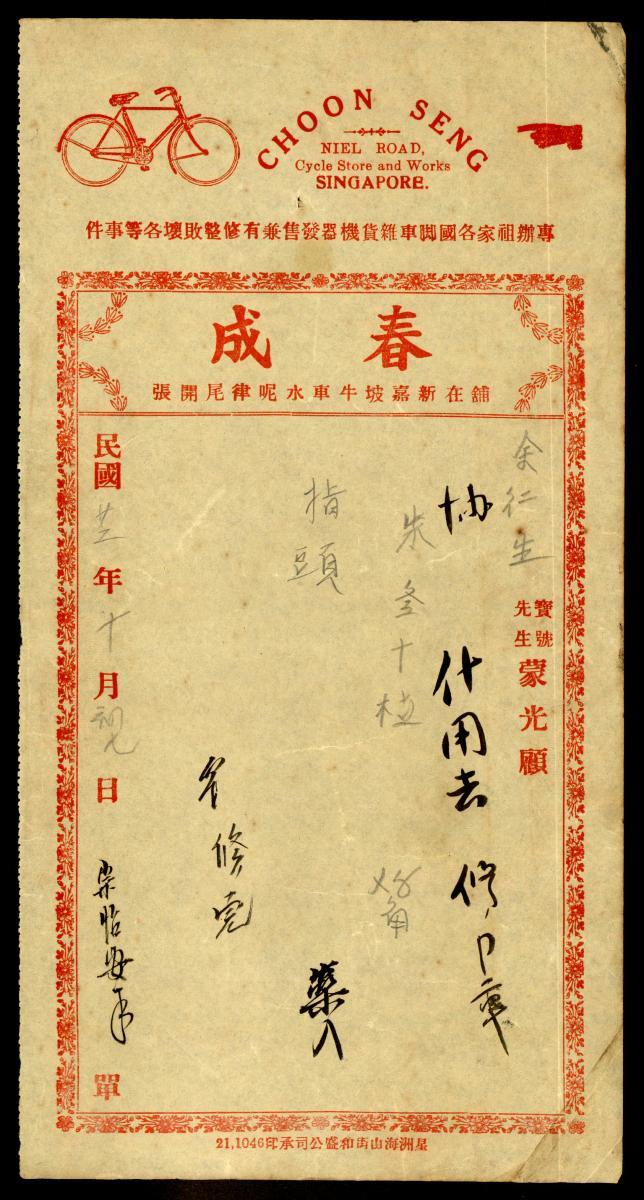 CHOON SENG
NIEL ROAD,
Cycle Store and Works
SINGAPORE.
專辦祖家各國脚車雜貨機器發售兼有修整敗壞各等事件
春成
舖在新嘉坡牛車水呢律尾開張
余仁生
寶號
先生
蒙光顧
什用去
修
朱叁十枝
指頭
民國廿二年十月初九日
單
星洲海山街和盛公司承印21,1046